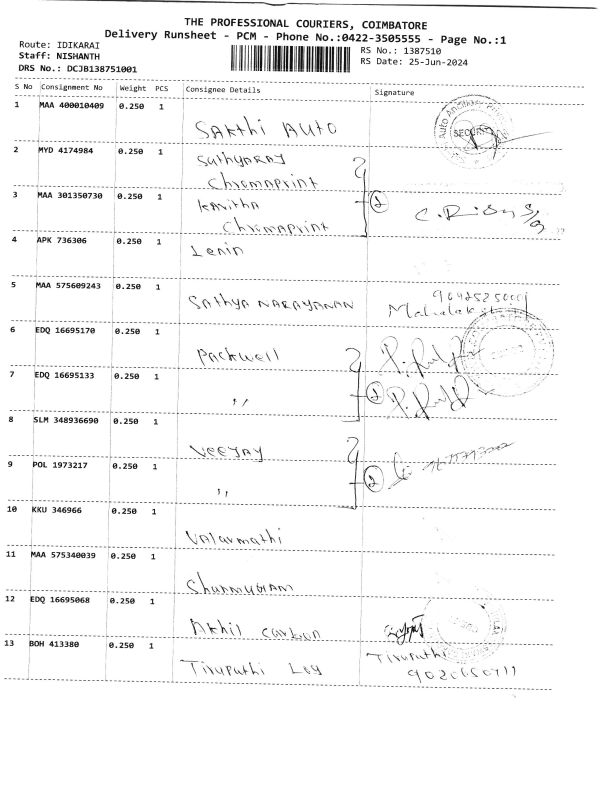 THE PROFESSIONAL COURIERS, COIMBATORE
Delivery Runsheet - PCM - Phone No.:0422-3505555 - Page No.:1
Route: IDIKARAI
Staff: NISHANTH
DRS No.: DCJB138751001
RS No.: 1387510
RS Date: 25-Jun-2024
S No Consignment No Weight PCS Consignee Details Signature
1 MAA 400010409 0.250 1
SAKthi AUTO
SECURITY
2 MYD 4174984 0.250 1
SathyaRAJ
ChromaPrint
3 MAA 301350730 0.250 1
KAvitha
ChromaPrint
2
4 APK 736306 0.250 1
Lenin
5 MAA 575609243 0.250 1
SAthya NARAYANAN
6 EDQ 16695170 0.250 1
PAckwell
7 EDQ 16695133 0.250 1
,,
2
8 SLM 348936690 0.250 1
VeeJAY
9 POL 1973217 0.250 1
,,
2
10 KKU 346966 0.250 1
VAlarmathi
11 MAA 575340039 0.250 1
ShanmugAm
12 EDQ 16695068 0.250 1
AKhil Carbon
13 BOH 413380 0.250 1
Tirupathi
Tirupathi Log